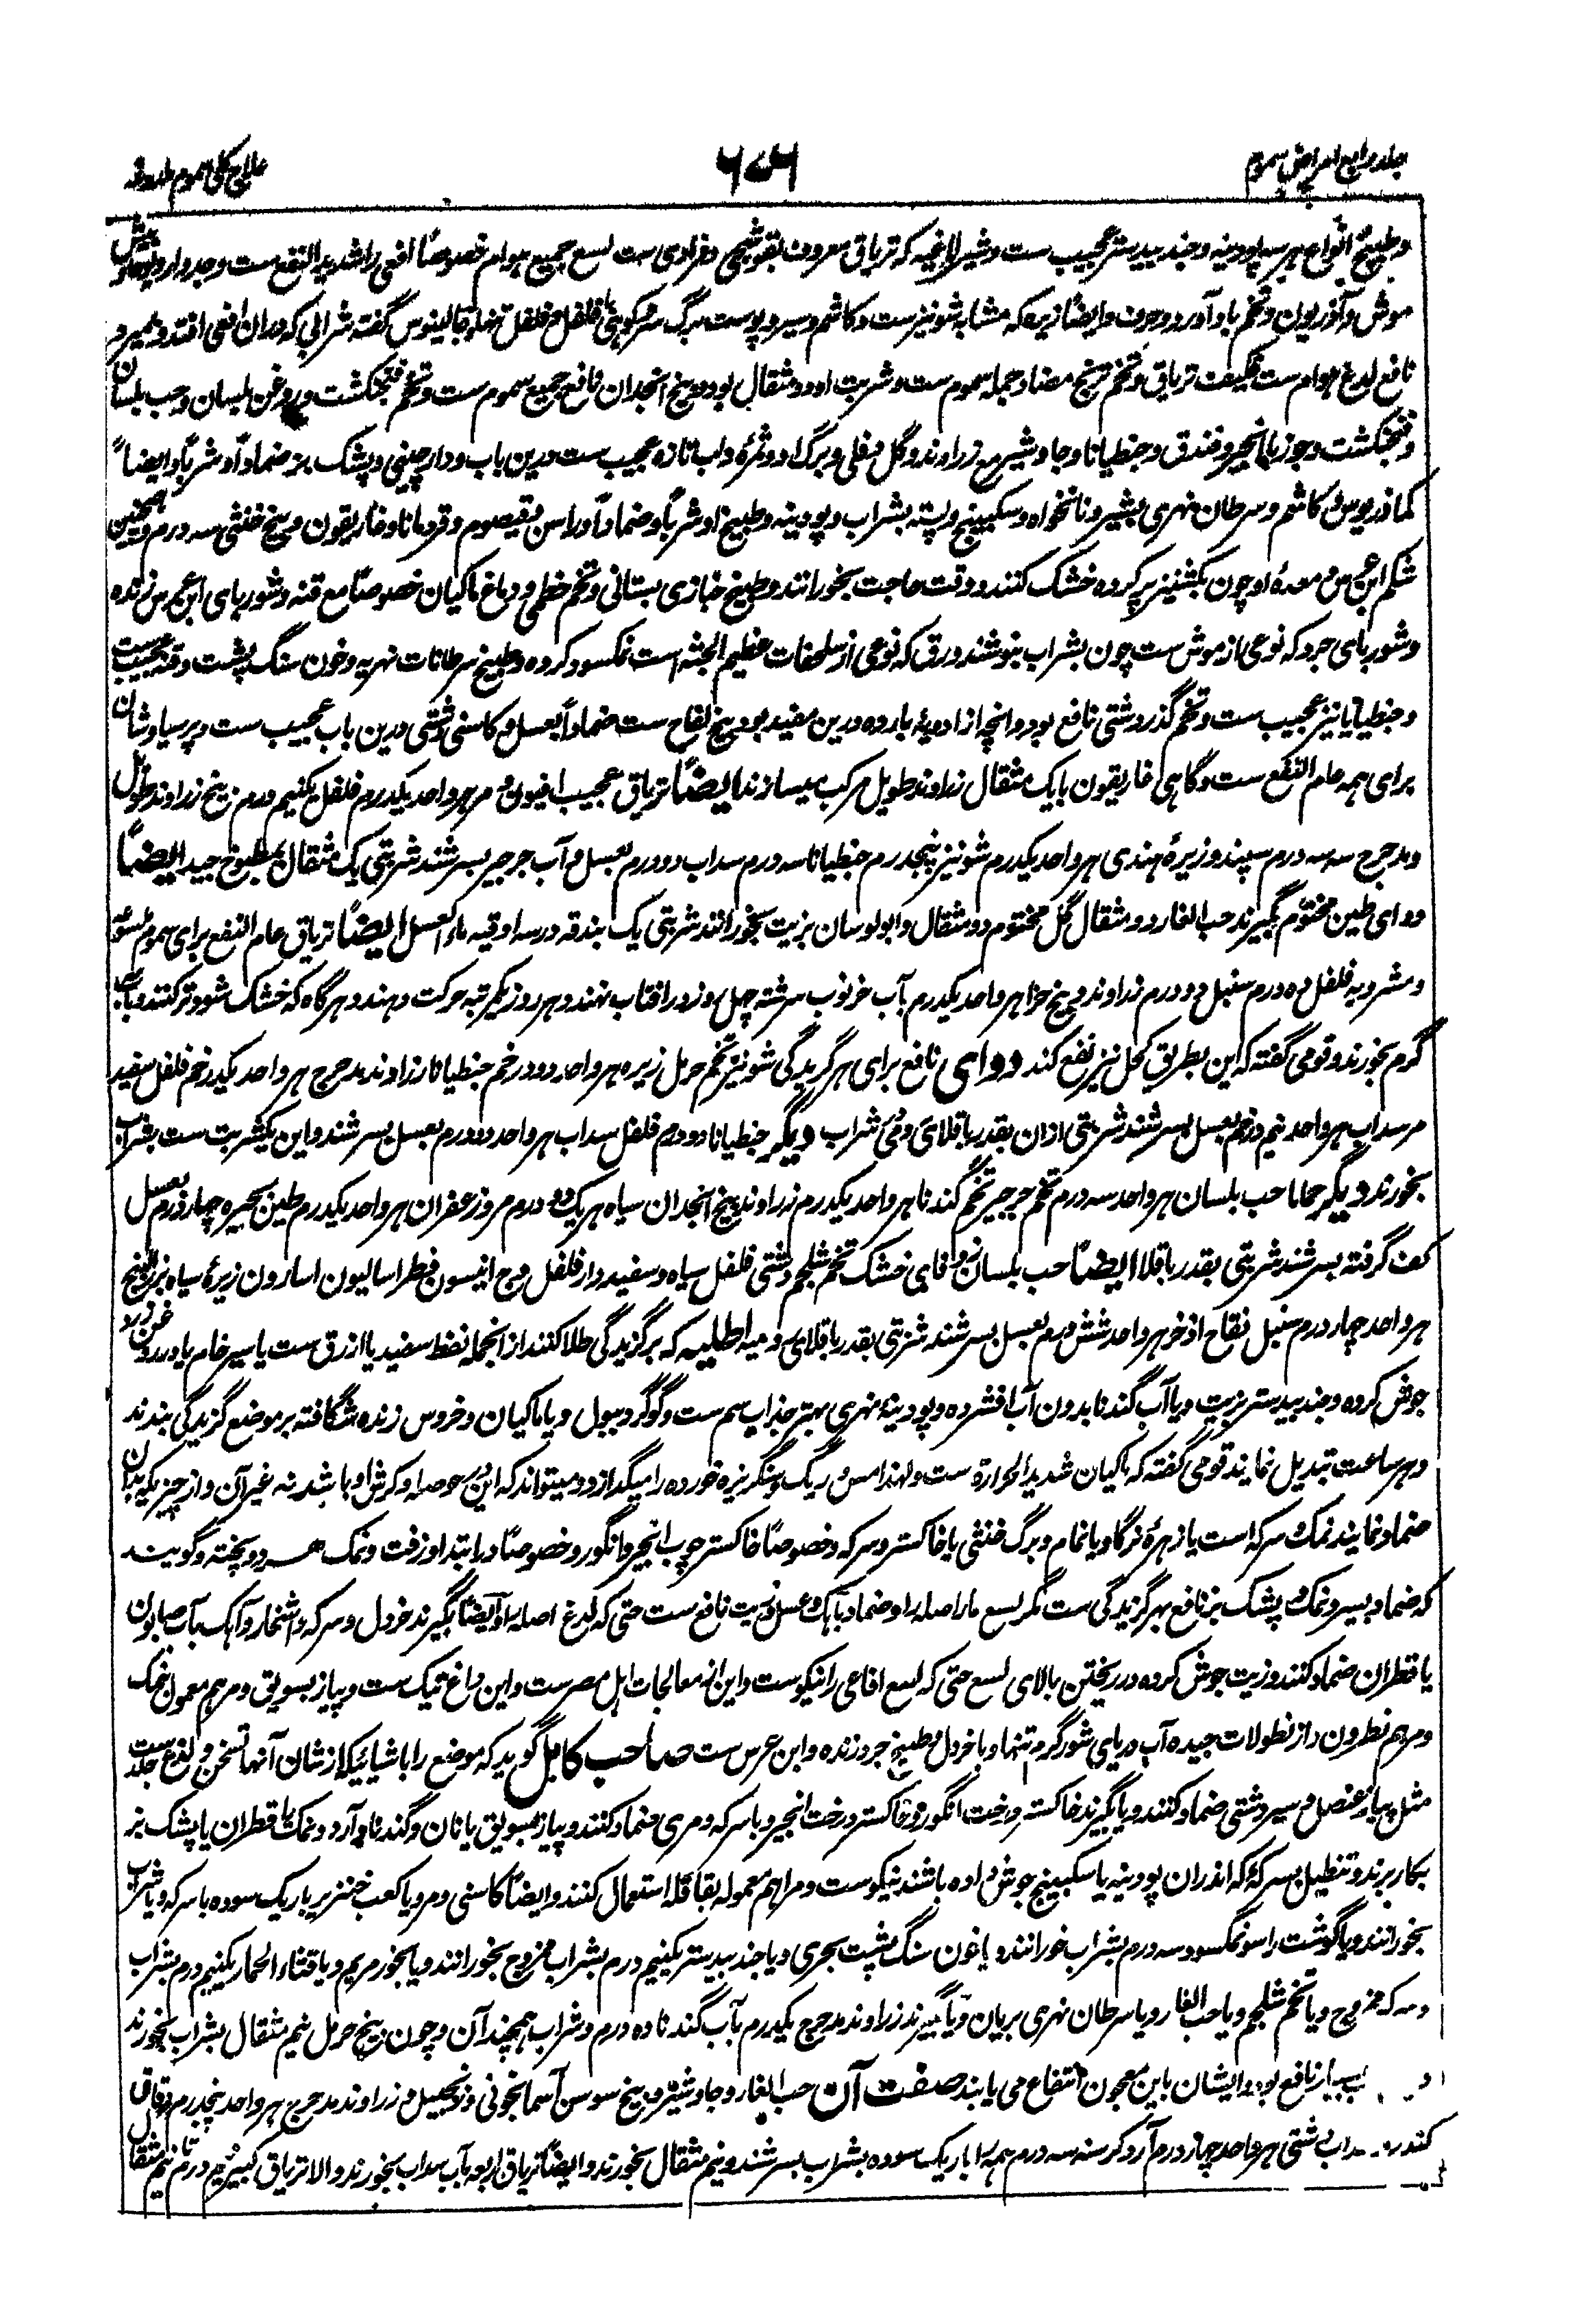 جلد رابع امراض سموم
۶۷۶
علاج کلی سموم ملدوغه
و طبیخ انواع هر سه پودینه و جندبیدستر عجیب ست و شیر لاغیه که تریاق معروف بقوشیحی و فرادی ست لسع جمیع هوام خصوصاً افعی را شدید النفع ست و جدوار و بیش
موش و آذریون و تخم بادآورد و حرف و ایضاً زیره که مشابه شونیز ست و کاشم و سیر و پوست برگ سرو کوهی با فلفل و فلفل تنها و جالینوس گفته شرابی که دران افعی افتد و بمیرد
نافع لدغ هوام ست تریاق و تخم ترنج مضاد جمله سموم ست و شربت او دو مثقال بود و بیخ انجدان نافع جمیع سموم ست و تخم فنجنکشت و روغن بلسان و حب بلسان
و فنجنکشت و جوز با انجیر و فندق و جنطیانا و جاوشیر مع زراوند و گل دفلی و برگ او و ثمره داب تازه عجیب ست درین باب و دارچینی و پشک بز ضماداً و شرباً و ایضاً
کمادریوس و کاشم و سرطان نهری بشیر و نانخواه و سکبینج و پسته بشراب و پودینه و طبیخ او شرباً و ضماداً و راسن و قیصوم و قردمانا و غاریقون و بیخ خنثی سه درم و همچنین
شکم ابن عرس و معدهٔ او چون بکشنیز پر کرده خشک کنند و وقت حاجت بخورانند و طبیخ خبازی بستانی و تخم خطمی و دماغ ماکیان خصوصاً مع قنه و شوربای ابن عرس زنده
و شوربای جرد که نوعی از موش ست چون بشراب بنوشند و رق که نوعی از سلحفات عظیم الجثه است نمکسود کرده و طبیخ سرطانات نهریه و خون سنگ پشت و قنه عجیب ست
و جنطیانا نیز عجیب ست و تخم گذر دشتی نافع بود و آنچه از ادویهٔ بارده درین مفید بود بیخ لفاح ست ضماداً بعسل و کاسنی دشتی درین باب عجیب ست و پرسیاوشان
برای همه عام النفع ست و گاهی غاریقون با یک مثقال زراوند طویل مرکب میسازند ایضاً تریاق عجیب افیون و مر هر واحد یکدرم فلفل یکنیم درم بیخ زراوند طویل
و مدحرج سه سه درم سپند و زیرهٔ هندی هر واحد یکدرم شونیز پنجدرم جنطیانا سه درم سداب دو درم بعسل و آب جرجیر بسرشند شربتی یک مثقال بمطبوخ جید ایضاً
دوای طین مختوم بگیرند حب الغار دو مثقال گل مختوم دو مثقال و ابولوسان بزیت بخورانند شربتی یک بندقه در سه اوقیه ماء العسل ایضاً تریاق عام النفع برای سموم ملسوعه
و مشروبه فلفل ده درم سنبل دو درم زراوند و بیخ خزا هر واحد یکدرم بآب خرنوب سرشته چهل روز در افتاب نهند و هر روز یکمرتبه حرکت دهند و هرگاه که خشک شود تر کنند و بآب
گرم بخورند و قومی گفته که این بطریق کحل نیز نفع کند دوای نافع برای هر گزیدگی شونیز تخم حرمل زیره هر واحد دو درخم جنطیانا زراوند مدحرج هر واحد یکدرخم فلفل سفید
مر سداب هر واحد نیم درخم بعسل بسرشند شربتی ازان بقدر باقلای رومی شراب دیگر جنطیانا دو درم فلفل سداب هر واحد دو درم بعسل بسرشند و این یکشربت ست بشراب
بخورند دیگر حماما حب بلسان هر واحد سه درم تخم جرجیر تخم گندنا هر واحد یکدرم زراوند بیخ انجدان سیاه هر یک دو درم مر و زعفران هر واحد یکدرم طین بحیره چهار درم بعسل
کف گرفته بسرشند شربتی بقدر باقلا ایضاً حب بلسان زوفای خشک تخم شلجم دشتی فلفل سیاه و سفید دار فلفل وج انیسون فطراسالیون اسارون زیرهٔ سیاه بزرالبنج
هر واحد چهار درم سنبل نقاح اذخر هر واحد شش درم بعسل بسرشند شربتی بقدر باقلای رومیه اطلیه که بر گزیدگی طلا کنند ازانجمله نفط سفید یا ازرق ست یا سیر خام یا در روغن زرد
جوش کرده و جندبیدستر بزیت و یا آب گندنا بدون آب افشرده و پودینهٔ نهری بهتر جذاب سم ست و گوگرد ببول و یا ماکیان و خروس زنده شگافته بر موضع گزیدگی بندند
و هر ساعت تبدیل نمایند قومی گفته که ماکیان شدید الحرارة ست و لهذا مس و ریگ و سنگریزه خورده را میگدازد و میتواند که این حوصله و کرش او باشد نه غیر آن و از چیزیکه بدان
ضماد نمایند نمک و سرکه است یا زهرهٔ نرگاو یا نمام و برگ خنثی یا خاکستر و سرکه و خصوصاً خاکستر چوب انجیر و انگور و خصوصاً در ابتدا و زفت و نمک هر دو پخته و گویند
که ضماد بسیر و نمک و پشک بز نافع بهر گزیدگی ست مگر لسع مار اصله را و ضماد بآهک و عسل و زیت نافع ست حتی که لدغ اصله را و ایضاً بگیرند خردل و سرکه و اشخار و آهک بآب صابون
یا قطران ضماد کنند و زیت جوش کرده در ریختن بالای لسع حتی که لسع افاعی را نیکوست و این از معالجات اهل مصر ست و این داغ نیک ست و پیاز بسویق و مرهم معمول بنمک
و مرهم نطرون و از نطولات جیده آب دریای شور گرم تنها و با خردل و طبیخ جرد زنده و ابن عرس ست صاحب کامل گوید که موضع را باشیائیکه از شان آنها تسخن و لدغ جلد ست
مثل پیاز عنصل و سیر دشتی ضماد کنند و یا بگیرند خاکستر درخت انگور و خاکستر درخت انجیر و با سرکه و مری ضماد کنند و پیاز بسویق یا نان و گندنا و آرد و نمک یا قطران یا پشک بز
بکار برند و تنطیل بسرکه که اندران پودینه یا سکبینج جوش داده باشند نیکوست و مراهم معموله بقاقله استعمال کنند و ایضاً کاسنی و مر و یا کعب خنزیر باریک سوده با سرکه و یا شراب
بخورانند و یا گوشت راسو نمکسود سه درم بشراب خورانند و یا خون سنگ پشت بحری و یا جندبیدستر یکنیم درم بشراب ممزوج بخورانند و یا بخور مریم و یا قثاء الحمار یکنیم درم بشراب
و سرکه ممزوج و یا تخم شلجم و یا حب الغار و یا سرطان نهری بریان و یا بگیرند زراوند مدحرج یکدرم بآب گندنا ده درم و شراب همچند آن و چون بیخ حرمل نیم مثقال بشراب بخورند
بسیار نافع بود و ایشان باین معجون انتفاع می یابند صفت آن حب الغار و جاوشیر و بیخ سوسن آسمانجونی و زنجبیل و زراوند مدحرج هر واحد پنجدرم دقاق
کندر و سداب دشتی هر واحد چهار درم آرد کرسنه سه درم همه را باریک سوده بشراب بسرشند و نیم مثقال بخورند و ایضاً تریاق اربعه بآب سداب بخورند والا تریاق کبیر نیم درم تا نیم مثقال